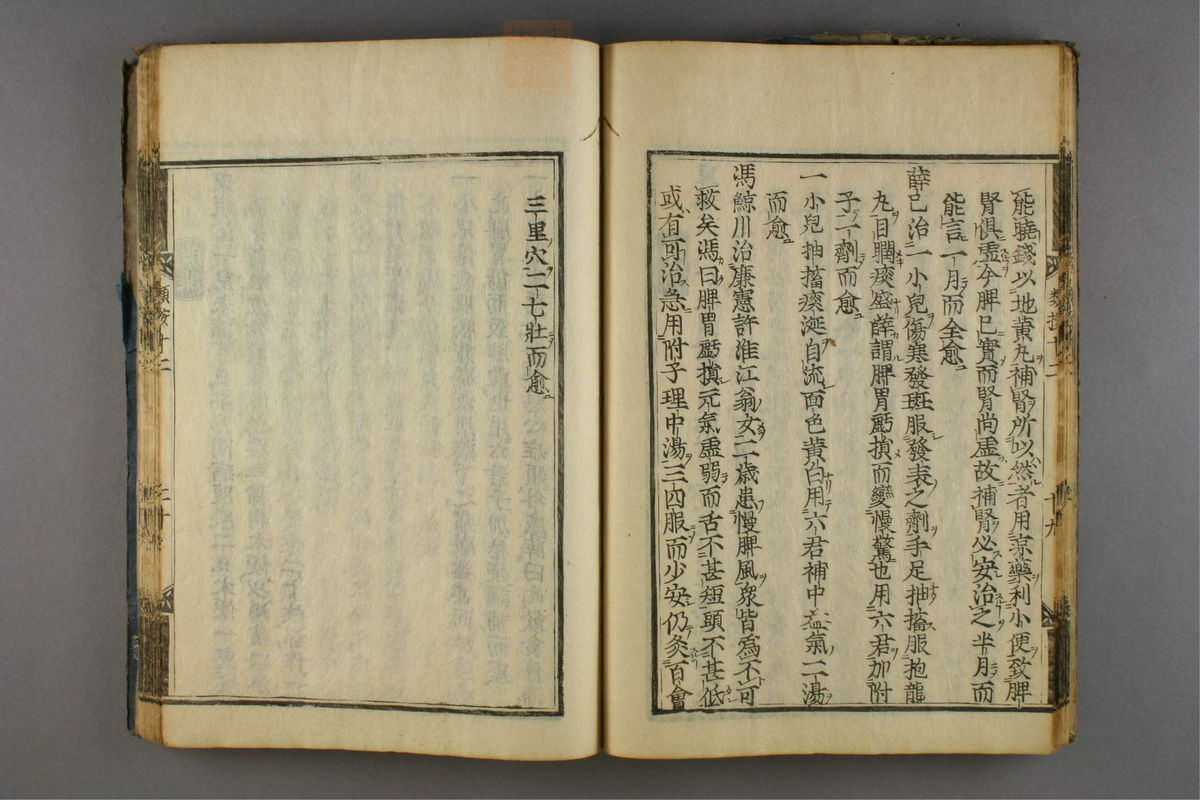 能曉錢以地黄丸補腎所以然者用凉藥利小便致脾
腎俱虚今脾已實而腎尚虚故補腎必安治之半月而
能言一月而全愈
薛已治一小兒傷寒發斑服發表之劑手足抽搐服抱龍
丸目瞤痰盛薛謂脾胃虧損而變慢驚也用六君加附
子二劑而愈
一小兒抽搐痰涎自流面色黄白用六君補中益氣二湯
而愈
馮鯨川治廉憲許淮江翁女二歳患慢脾風衆皆爲不可
救矣馮曰脾胃虧損元氣虚弱而舌不甚短頭不甚低
或有可治急用附子理中湯三四服而少安仍灸百會
三里穴二七壯而愈